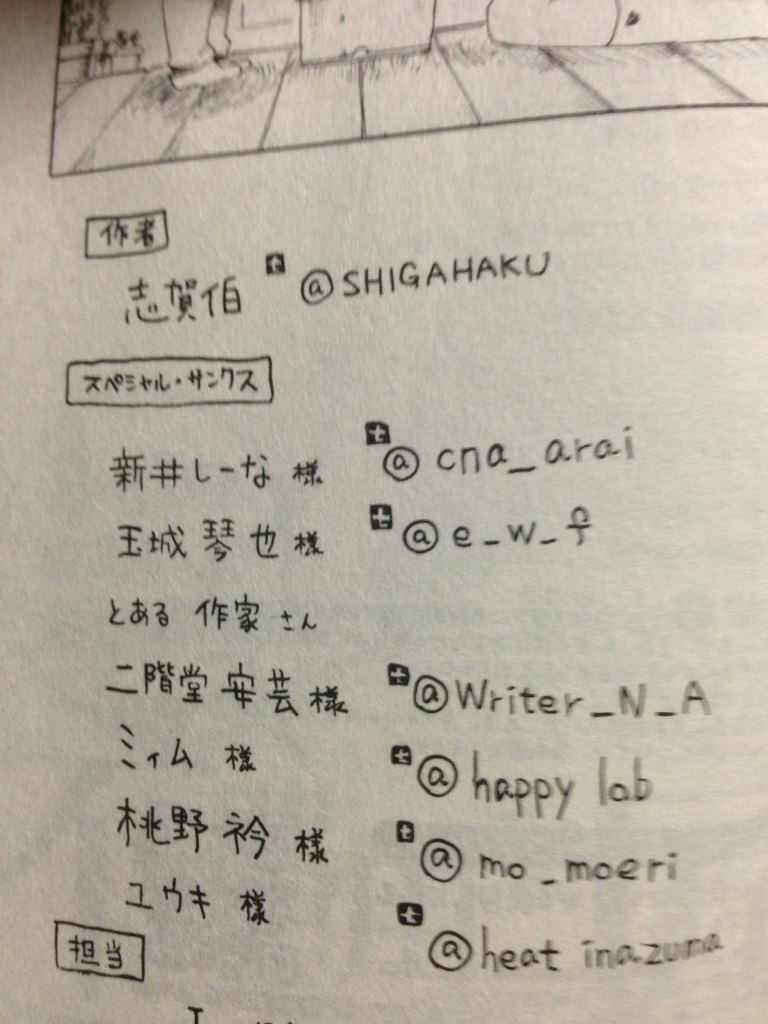 作者
志賀伯 t @SHIGAHAKU
スペシャル・サンクス
新井しーな 様 t @cna_arai
玉城 琴也 様 t @e_w_
とある 作家 さん
二階堂 安芸 様 t @Writer_N_A
ミィム 様 t @happy lab
桃野 衿 様 t @mo_moeri
ユウキ 様 t @heat inazuma
担当